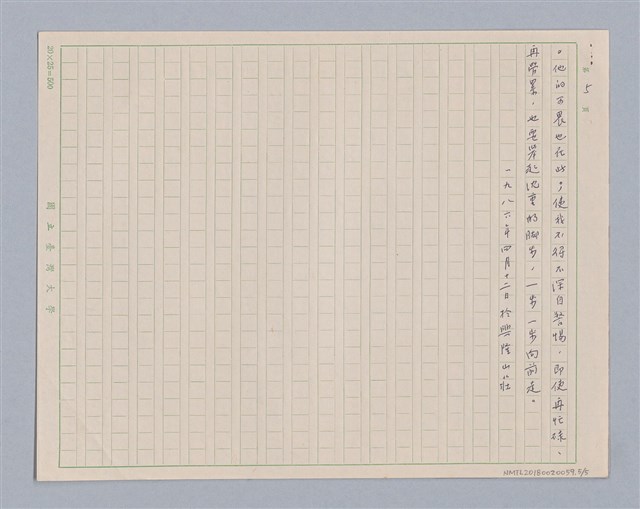 第 5 頁
。他的可畏也在此，使我不得不深自警惕，即使再忙碌、
再勞累，也要舉起沈重的腳步，一步一步向前走。
一九八六年四月十二日於興隆山莊
20×25=500
國立臺灣大學
NMTL20180020059.5/5